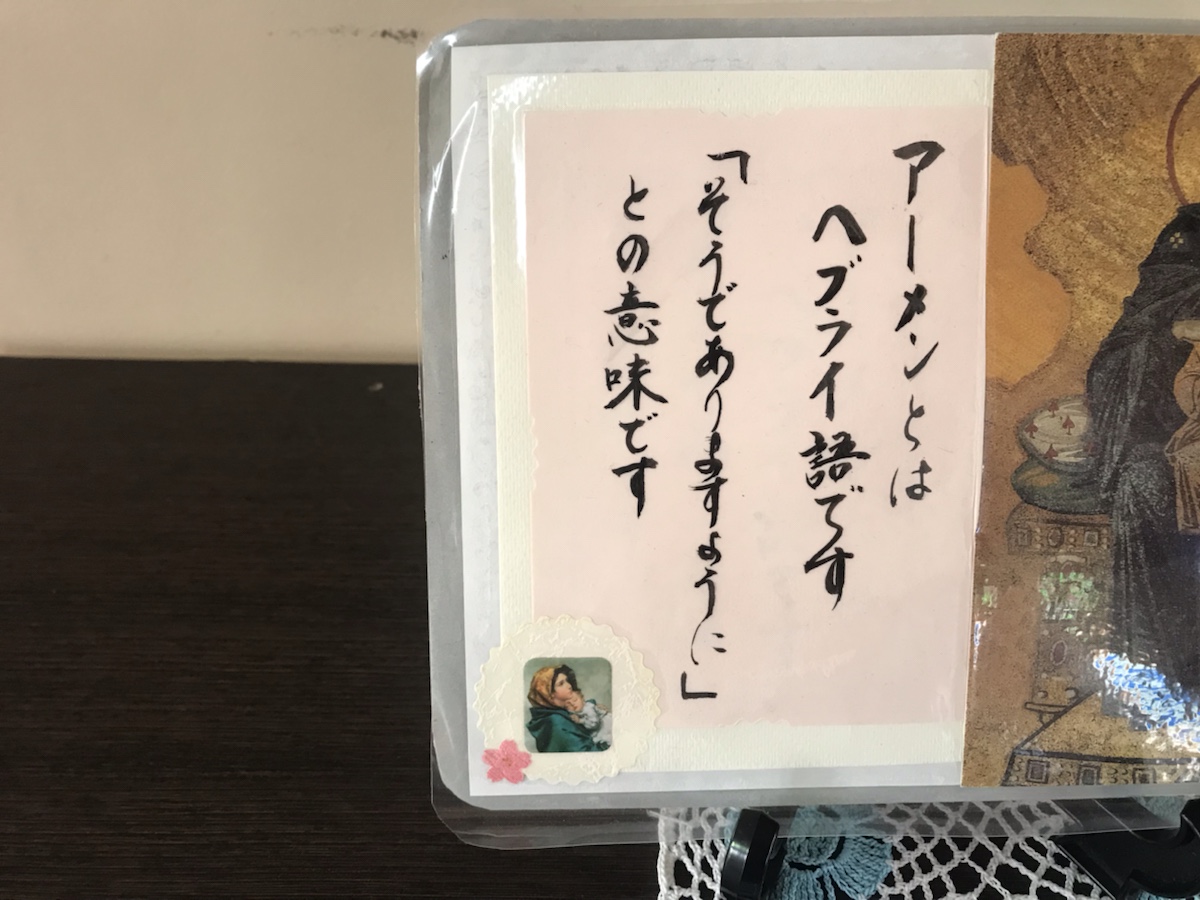 アーメンとは
ヘブライ語です
「そうでありますように」
との意味です